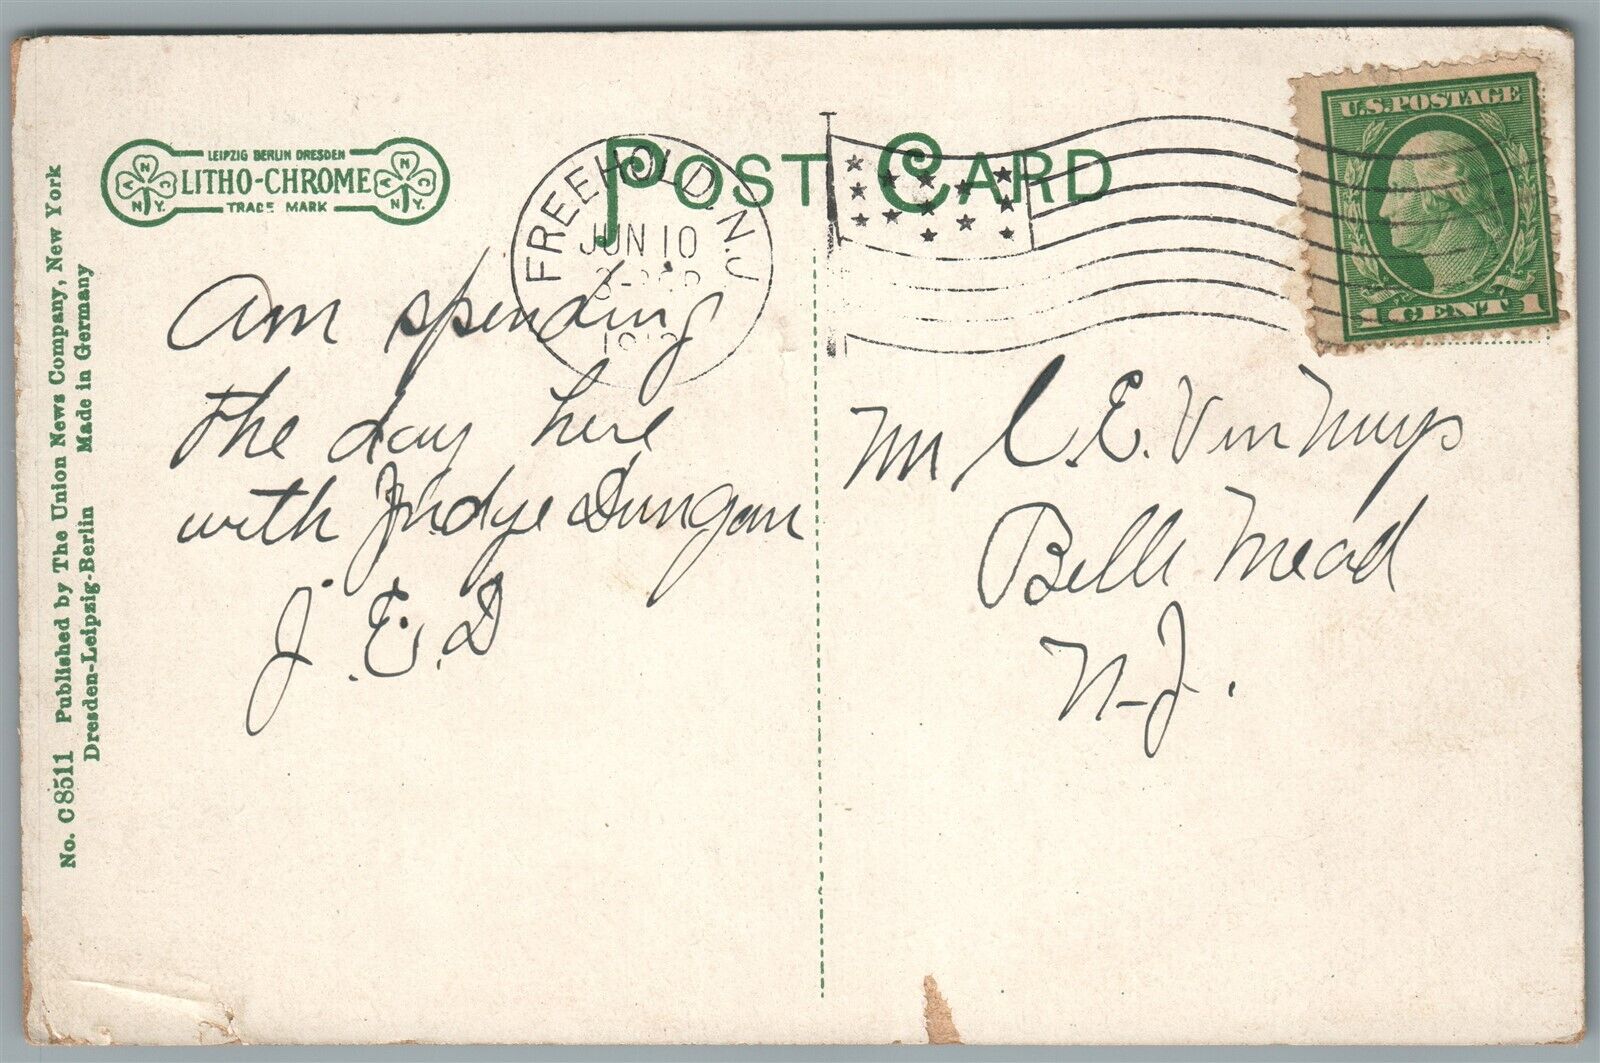 POST CARD
LEIPZIG BERLIN DRESDEN
LITHO-CHROME
TRADE MARK
ANC
N.Y.
ANC
N.Y.
FREEHOLD, N.J.
JUN 10
U.S. POSTAGE
1 CENT 1
Am spending
the day here
with Judge Dungan
J. E. D
Mr C. E. Van
Belle Mead
N-J.
No. C8511 Published by The Union News Company, New York
Dresden-Leipzig-Berlin Made in Germany